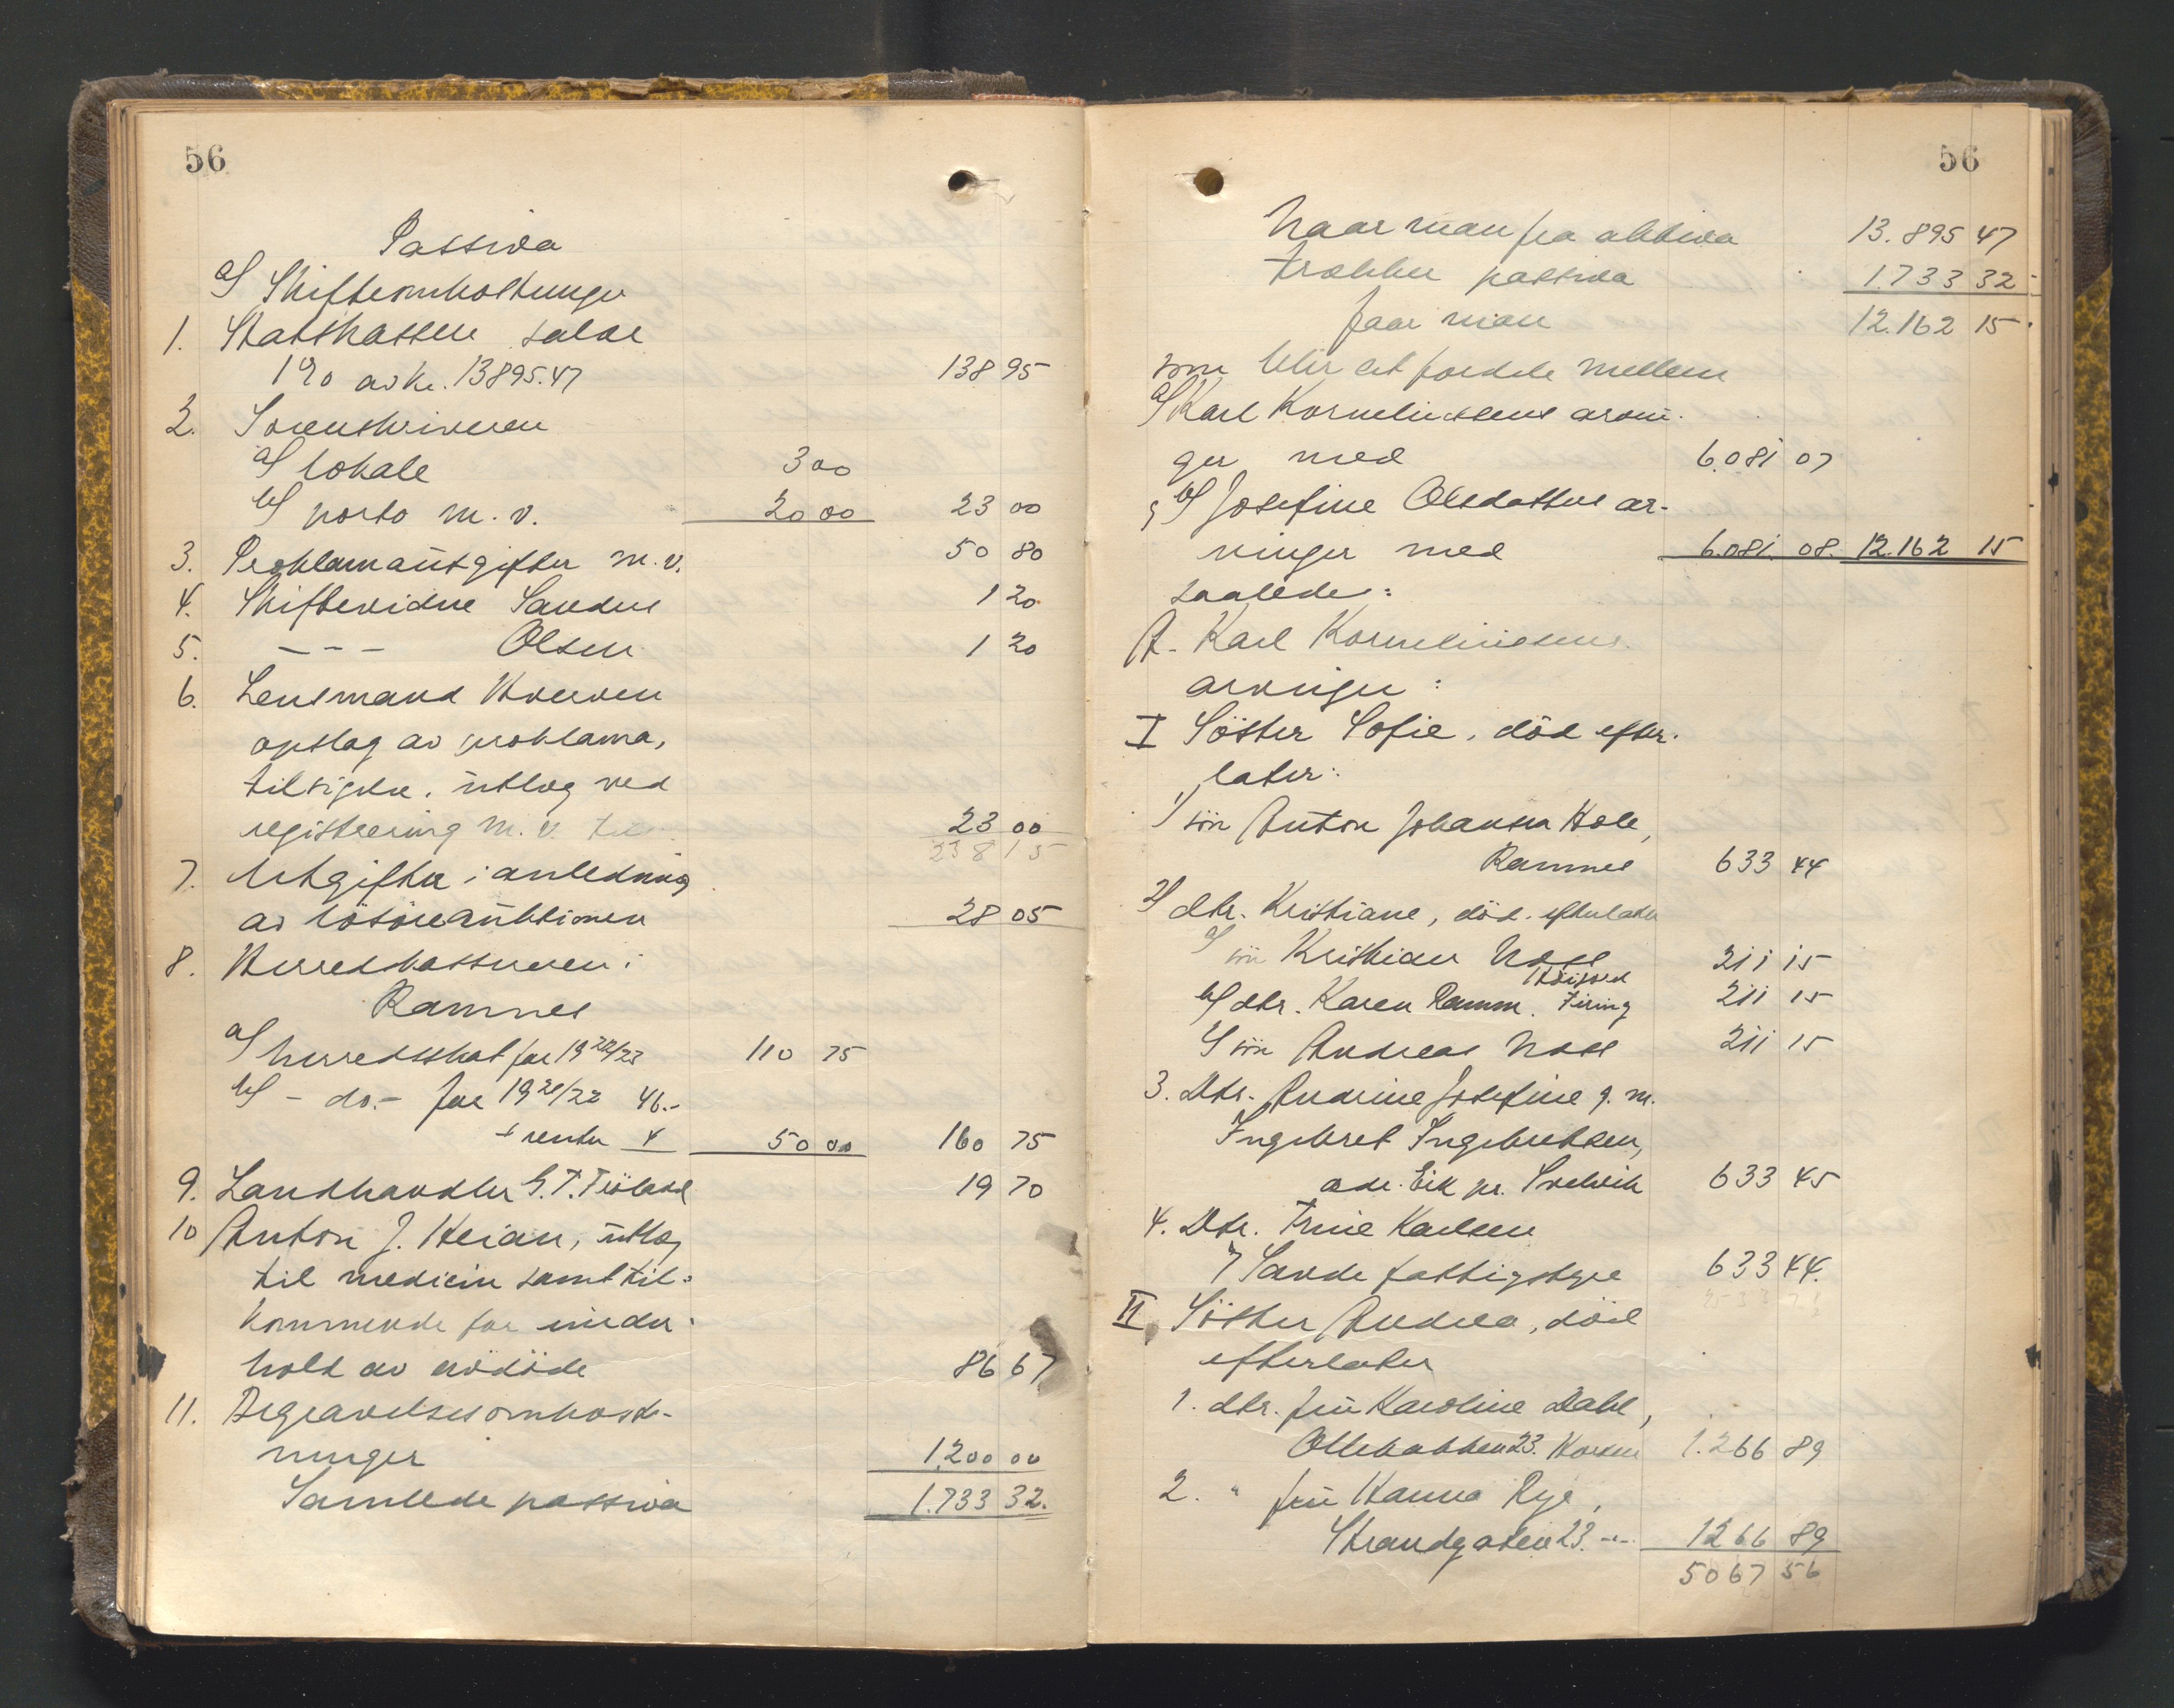 56
Passiva
a) Skifteomkostninger
1. Statskassen salær
1% av kr. 13895.47 138 95
2. Sorenskriveren
a) lokale 3 00
b) porto m. v. 20 00 23 00
3. Proklamautgifter m. v. 50 80
4. Skiftevidne Sanden 1 20
5. - - - Olsen 1 20
6. Lensmand Kverven
opslag av proklama,
tilsigelse, utlæg ved
registrering m. v. 23 00
238 15
7. Utgifter i anledning
av lösöreauktionen 28 05
8. Herredskassereren i
Ramnes
a) herredsskat for 1922/23 110 75
b) - do.- for 1921/22 46.-
+ renter 4 50 00 160 75
9. Landhandler G. T. Fröland 19 70
10 Anton J. Heian, utlæg
til medicin samt til-
kommende for under-
hold av avdöde 86 67
11. Begravelsesomkost-
ninger 1.200 00
Samlede passiva 1.733 32.
56
Naar man fra aktiva 13.895 47
trækker passiva 1.733 32
faar man 12.162 15
som blir at fordele mellem
a) Karl Korneliussens arvin-
ger med 6.081 07
b) Josefine Olsdatters ar-
vinger med 6.081. 08. 12.162 15
saaledes:
A. Karl Korneliussens
arvinger:
I Söster Sofie, död efter-
later:
1) sön Anton Johansen Hole,
Ramnes 633 44
2) dtr. Kristiane, död. efterlater
a) sön Kristian Nass 211 15
b) dtr. Karen Ramm. Firing 211 15
c) sön Andreas Nass 211 15
3. Dtr. Andrine Josefine g. m.
Ingebret Ingebretsen,
adr. Eik pr. Svelvik 633 45
4. Dtr. Trine Karlsen
Sande fattigstyre 633 44.
II Söster Andrea, död
efterlater
1. dtr. fru Karoline Dahl,
Ollebakken 23. Horten 1.266 89
2. " fru Hanna Rye,
Strandgaten 23. -"- 1266 89
5067 56